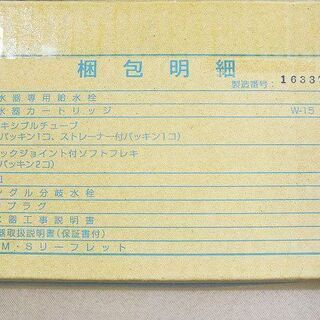 梱包明細
製造番号: 16337
水器専用給水栓
水器カートリッジ W-15
キシブルチューブ
パッキン1コ、ストレーナー付パッキン1コ)
ックジョイント付ソフトフレキ
パッキン2コ)
ングル分岐水栓
プラグ
水器工事説明書
器取扱説明書(保証書付)
M・Sリーフレット